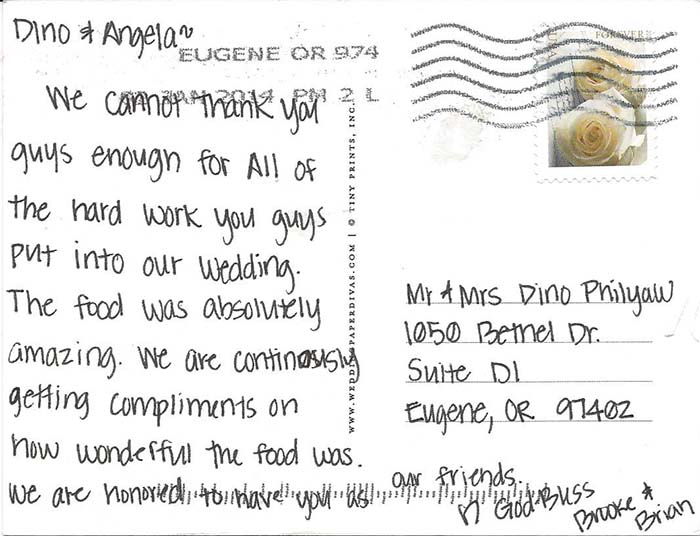 Dino & Angela~
EUGENE OR 974
JAN 2014 PM 2 L
We cannot thank you
guys enough for All of
the hard work you guys
put into our wedding.
The food was absolutely
amazing. We are continously
getting compliments on
how wonderful the food was.
We are honored to have you as our friends.
God Bless
Brooke &
Brian
WWW.WEDDINGPAPERDIVAS.COM | © TINY PRINTS, INC.
FOREVER
Mr & Mrs Dino Philyaw
1050 Bethel Dr.
Suite D1
Eugene, OR 97402